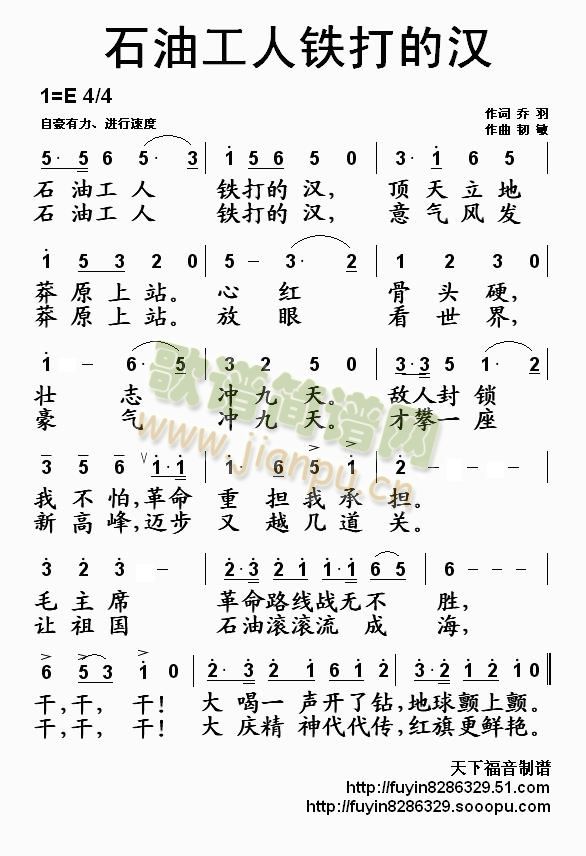 石油工人铁打的汉
1=E 4/4
作词 乔 羽
自豪有力、进行速度
作曲 韧 敏
5· 5 6 5· 3 | 1 5 6 5 0 | 3· 1 6 5
石 油 工 人 铁 打 的 汉, 顶 天 立 地
石 油 工 人 铁 打 的 汉, 意 气 风 发
1 5 3 2 0 | 5 – 3· 2 | 1 2 3 0
莽 原 上 站。 心 红 骨 头 硬,
莽 原 上 站。 放 眼 看 世 界,
1 – 6· 5 | 3 2 5 0 | 3·3 5 1· 2
壮 志 冲 九 天。 敌 人 封 锁
豪 气 冲 九 天。 才 攀 一 座
3 5 6 √ 1·1 | 1· 6 5 1 | 2 –
我 不 怕,革 命 重 担 我 承 担。
新 高 峰,迈 步 又 越 几 道 关。
3 2 3 – | 2·3 2 1 1·1 6 5 | 6 – – 0
毛 主 席 革 命 路 线 战 无 不 胜,
让 祖 国 石 油 滚 滚 流 成 海,
6 5 3 1 0 | 2·3 2 1 3·2 1 2 | 3·2 1 2 1 0
干,干, 干! 大 喝 一 声 开 了 钻,地 球 颤 上 颤。
干,干, 干! 大 庆 精 神 代 代 传,红 旗 更 鲜 艳。
天下福音制谱
http://fuyin8286329.51.com
http://fuyin8286329.sooopu.com
歌谱简谱网
www.jianpu.cn